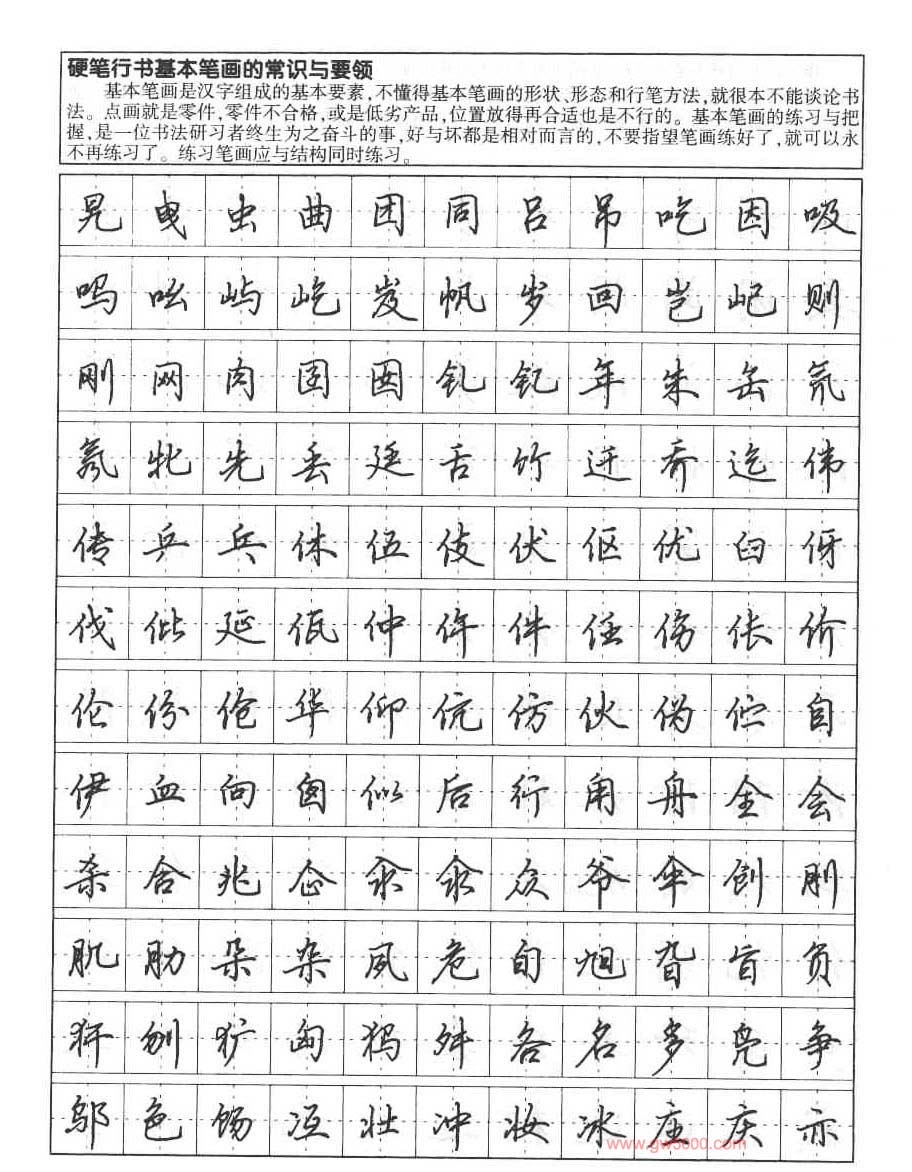 硬笔行书基本笔画的常识与要领
基本笔画是汉字组成的基本要素,不懂得基本笔画的形状、形态和行笔方法,就很本不能谈论书
法。点画就是零件,零件不合格,或是低劣产品,位置放得再合适也是不行的。基本笔画的练习与把
握,是一位书法研习者终生为之奋斗的事,好与坏都是相对而言的,不要指望笔画练好了,就可以永
不再练习了。练习笔画应与结构同时练习。
晃 曳 虫 曲 团 同 吕 吊 吃 因 吸
吗 吆 屿 屹 岌 帆 岁 回 岂 屺 则
刚 网 肉 囡 钆 钇 年 朱 缶 氘
氖 牝 先 丢 廷 舌 竹 迁 乔 迄 伟
传 乒 乓 休 伍 伎 伏 伛 优 臼 伢
伐 仳 延 仲 件 任 伤 伥 价
伦 份 伧 华 仰 伉 仿 伙 伪 伫 自
伊 血 向 囟 似 后 行 甪 舟 全 会
杀 合 兆 企 汆 众 爷 伞 创 刖
肌 肋 朵 杂 夙 危 旬 旭 旮 旨 负
犴 刎 犷 匈 犸 舛 各 名 多 凫 争
邬 色 饧 冱 壮 冲 妆 冰 庄 庆 亦
www.gw5000.com